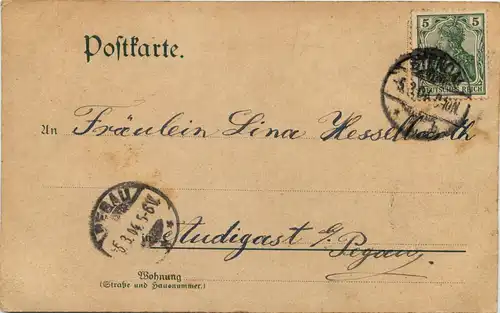 Postkarte.
5
DEUTSCHES REICH
5.3.04.
An Fräulein Lina Hesselbarth
PEGAU
6.3.04.5-6V.
in Audigast b/
Pegau
Wohnung
(Straße und Hausnummer.)